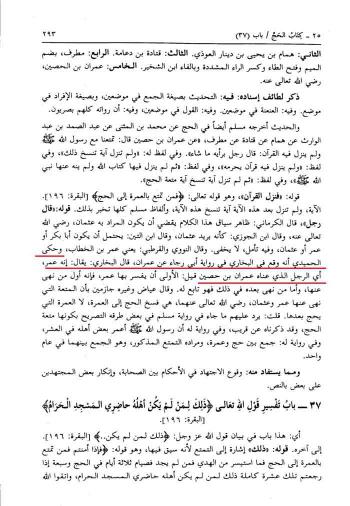 ٢٥ - كتاب الحج / باب (٣٧) ٢٩٣
الثاني: همام بن يحيى بن دينار العوذي. الثالث: قتادة بن دعامة. الرابع: مطرف، بضم
الميم وفتح الطاء وكسر الراء المشددة وبالفاء ابن الشخير. الخامس: عمران بن الحصين،
رضي الله تعالى عنه.
ذكر لطائف إسناده: فيه: التحديث بصيغة الجمع في موضعين، وبصيغة الإفراد في
موضع. وفيه: العنعنة في موضعين. وفيه: القول في موضعين. وفيه: أن رواته كلهم بصريون.
والحديث أخرجه مسلم أيضاً في الحج عن محمد بن المثنى عن عبد الصمد بن عبد
الوارث عن همام عن قتادة عن مطرف، «عن عمران بن حصين قال: تمتعنا مع رسول الله ﷺ
ولم ينزل فيه القرآن: قال رجل برأيه ما شاء». وفي لفظ له: «ولم تنزل آية تنسخ ذلك»، وفي
لفظ: «ولم ينزل فيه قرآن يحرمه»، وفي لفظ: «ثم لم ينزل فيها كتاب الله ولم ينه عنها نبي
الله ﷺ»، وفي لفظ: «ثم لم تنزل آية تنسخ آية متعة الحج».
قوله: «فنزل القرآن»، وهو قوله تعالى: ﴿فمن تمتع بالعمرة إلى الحج﴾ [البقرة: ١٩٦].
الآية، ولم تنزل بعد هذه الآية آية تنسخ هذه الآية، وألفاظ مسلم كلها تخبر بذلك. قوله: «قال
رجل»، قال الكرماني: ظاهر سياق هذا الكلام يقتضي أن يكون المراد به عثمان، رضي الله
تعالى عنه، وقال ابن الجوزي: كأنه يريد عثمان، وقال ابن التين: يحتمل أن يكون أبا بكر أو
عمر أو عثمان، وفيه تأمل، لا يخفى. وقال النووي والقرطبي: يعني عمر بن الخطاب، وحكى
الحميدي أنه وقع في البخاري في رواية أبي رجاء عن عمران، قال البخاري: يقال: إنه عمر،
أي الرجل الذي عناه عمران بن حصين قيل: الأولى أن يفسر بها عمر، فإنه أول من نهى
عنها، وأما من نهى بعده في ذلك فهو تابع له. وقال عياض وغيره جازمين بأن المتعة التي
نهى عنها عمر وعثمان، رضي الله تعالى عنهما، هي فسخ الحج إلى العمرة، لا العمرة التي
يحج بعدها. قلت: يرد عليهم ما جاء في رواية مسلم في بعض طرقه التصريح بكونها متعة
الحج، وقد ذكرناه عن قريب، وفي رواية له أن رسول الله ﷺ أعمر بعض أهله في العشر،
وفي رواية له: جمع بين حج وعمرة، ومراده التمتع المذكور، وهو الجمع بينهما في عام
واحد.
ومما يستفاد منه: وقوع الاجتهاد في الأحكام بين الصحابة، وإنكار بعض المجتهدين
على بعض بالنص.
٣٧ - باب تفسير قول الله تعالى ﴿ذلك لمن لم يكن أهله حاضري المسجد الحرام﴾
[البقرة: ١٩٦]
أي: هذا باب في بيان قول الله عز وجل: ﴿ذلك لمن لم يكن..﴾ [البقرة: ١٩٦].
إلى آخره. قوله: «ذلك» إشارة إلى التمتع لأنه سبق فيها، وهو قوله: ﴿فإذا أمنتم فمن تمتع
بالعمرة إلى الحج فما استيسر من الهدي فمن لم يجد فصيام ثلاثة أيام في الحج وسبعة إذا
رجعتم تلك عشرة كاملة ذلك لمن لم يكن أهله حاضري المسجد الحرام، واتقوا الله